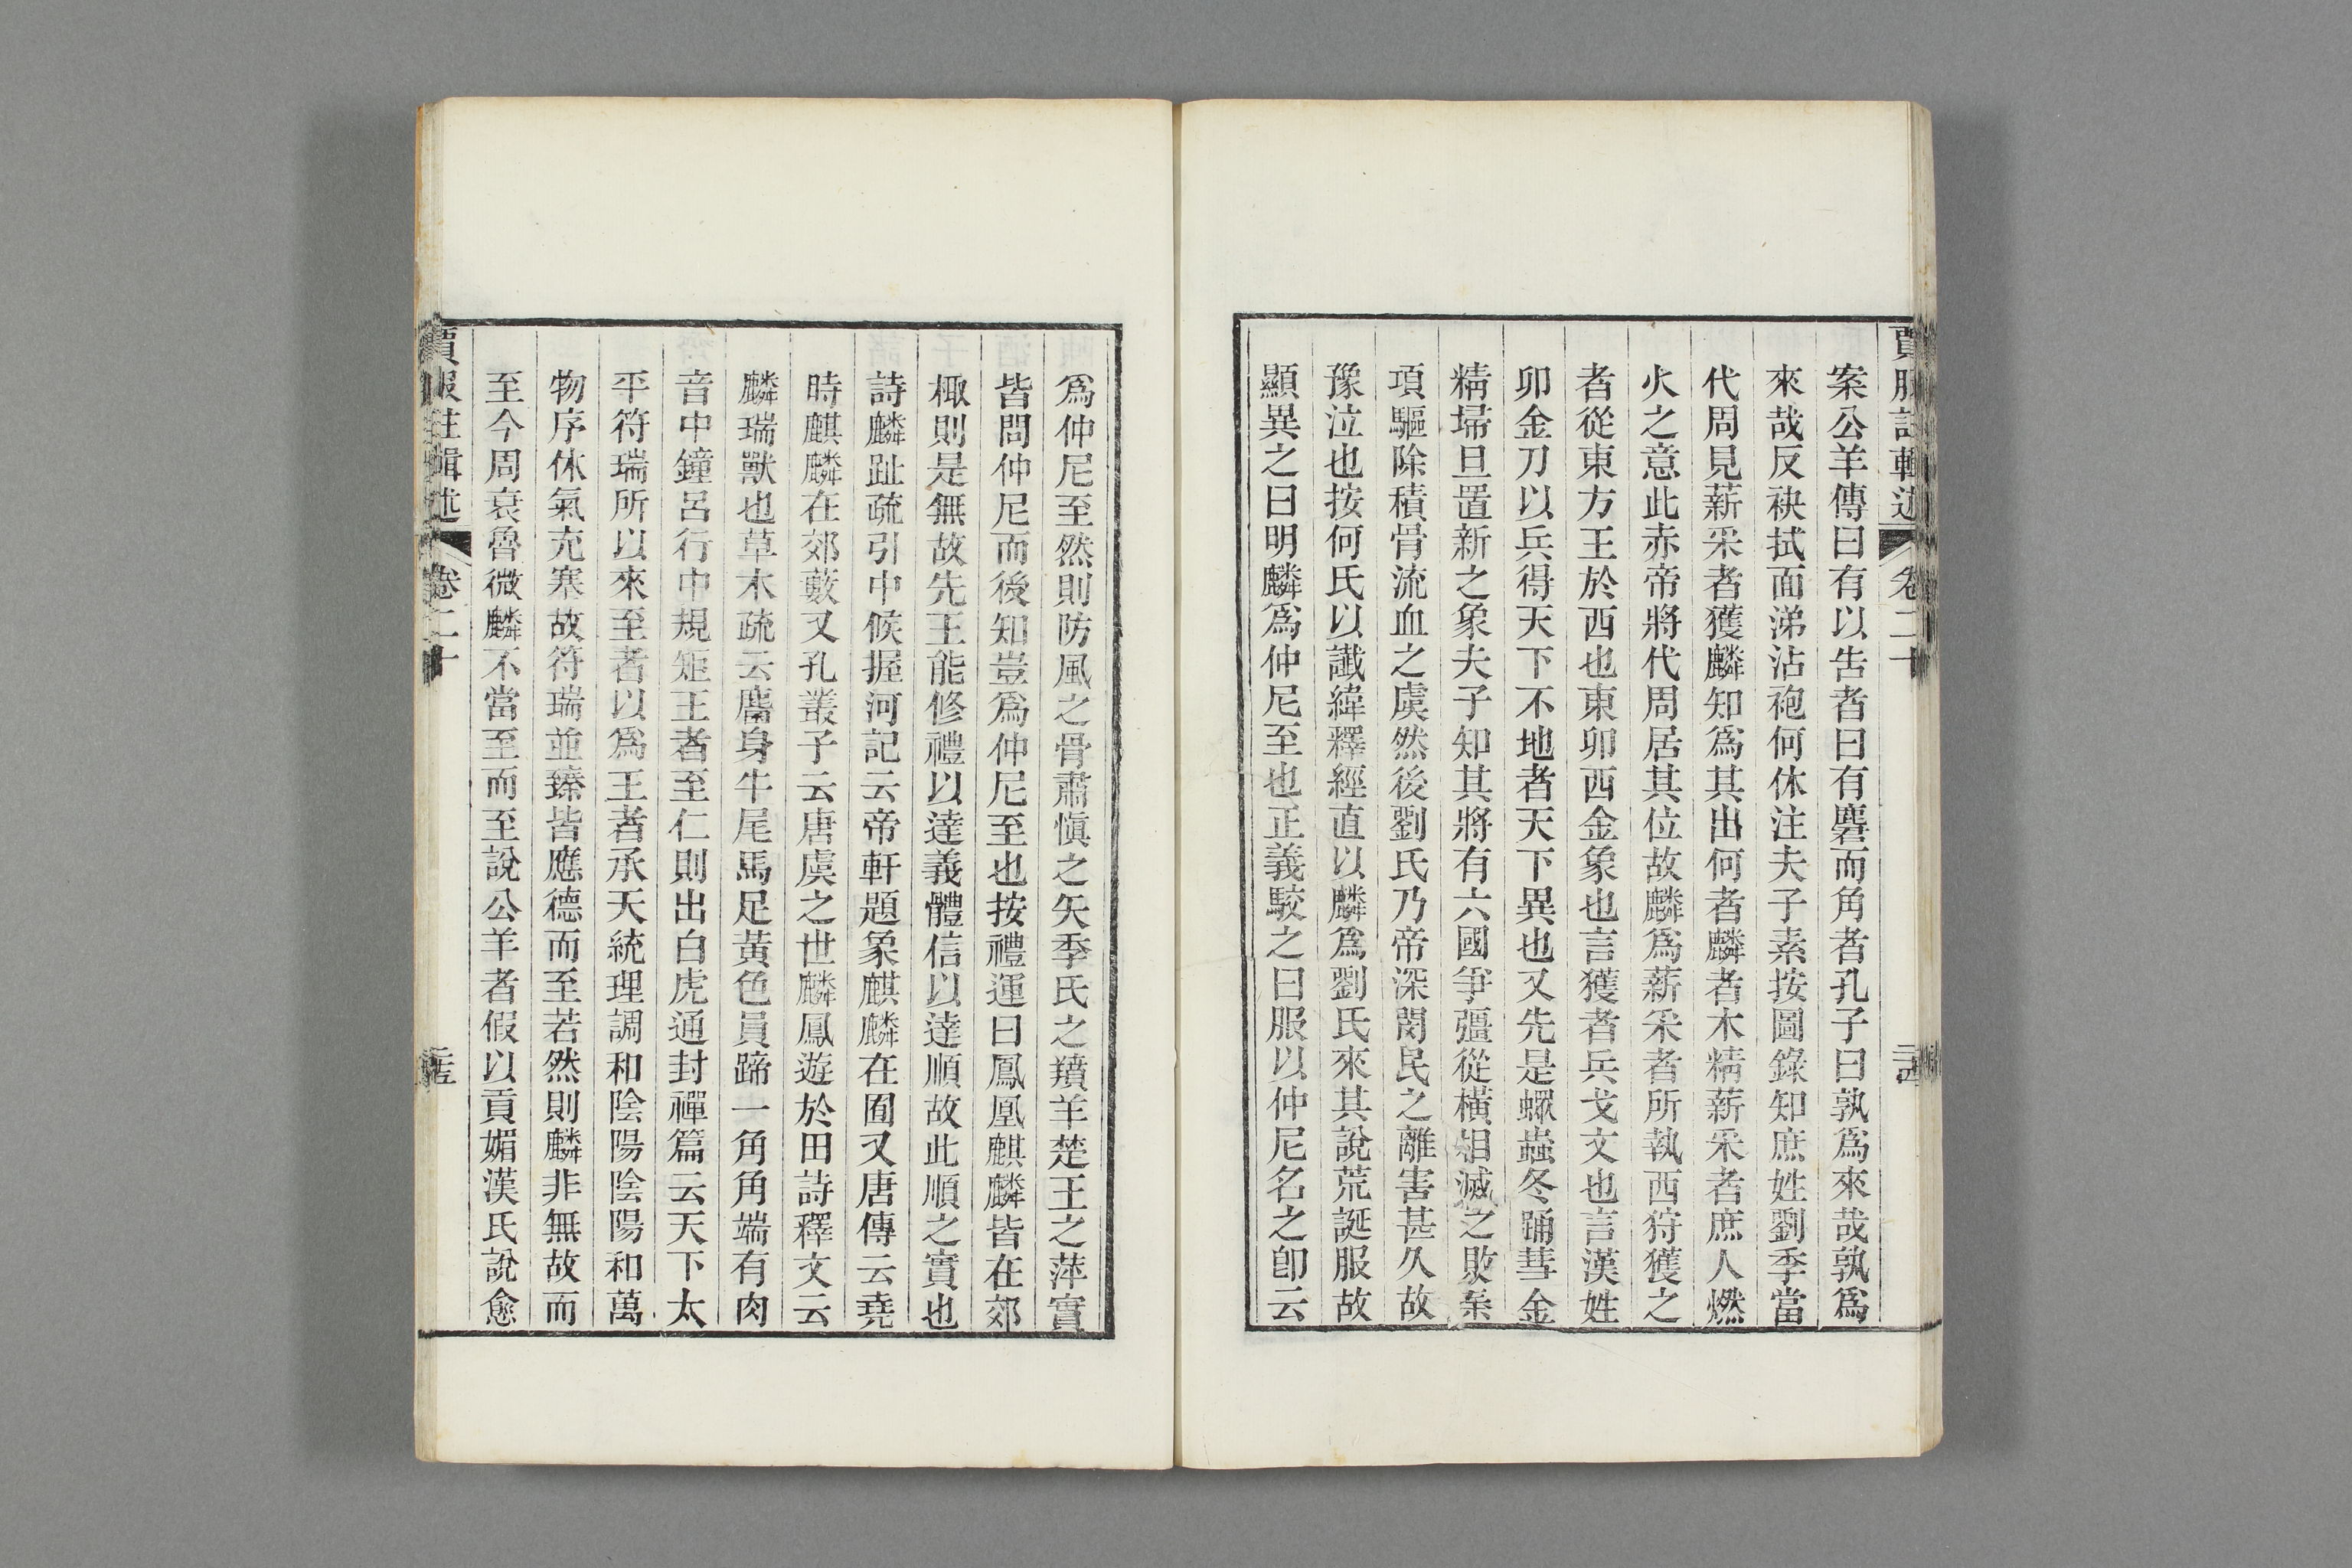 賈服註輯述 卷二十 二十四
案公羊傳曰有以告者曰有麏而角者孔子曰孰爲來哉孰爲
來哉反袂拭面涕沾袍何休注夫子素按圖錄知庶姓劉季當
代周見薪釆者獲麟知爲其出何者麟者木精薪釆者庶人燃
火之意此赤帝將代周居其位故麟爲薪釆者所執西狩獲之
者從東方王於西也東卯西金象也言獲者兵戈文也言漢姓
卯金刀以兵得天下不地者天下異也又先是螺蟲冬踊彗金
精埽旦置新之象夫子知其將有六國爭彊從橫相滅之敗秦
項驅除積骨流血之虞然後劉氏乃帝深閔民之離害甚久故
豫泣也按何氏以讖緯釋經直以麟爲劉氏來其說荒誕服故
顯異之曰明麟爲仲尼至也正義駮之曰服以仲尼名之卽云
爲仲尼至然則防風之骨肅愼之矢季氏之羵羊楚王之萍實
皆問仲尼而後知豈爲仲尼至也按禮運曰鳳凰麒麟皆在郊
棷則是無故先王能修禮以達義體信以達順故此順之實也
詩麟趾疏引中候握河記云帝軒題象麒麟在囿又唐傳云堯
時麒麟在郊藪又孔叢子云唐虞之世麟鳳遊於田詩釋文云
麟瑞獸也草木疏云麕身牛尾馬足黃色員蹄一角角端有肉
音中鐘呂行中規矩王者至仁則出白虎通封禪篇云天下太
平符瑞所以來至者以爲王者承天統理調和陰陽陰陽和萬
物序休氣充塞故符瑞並臻皆應德而至若然則麟非無故而
至今周衰魯微麟不當至而至說公羊者假以貢媚漢氏說愈
賈服註輯述 卷二十 二十五